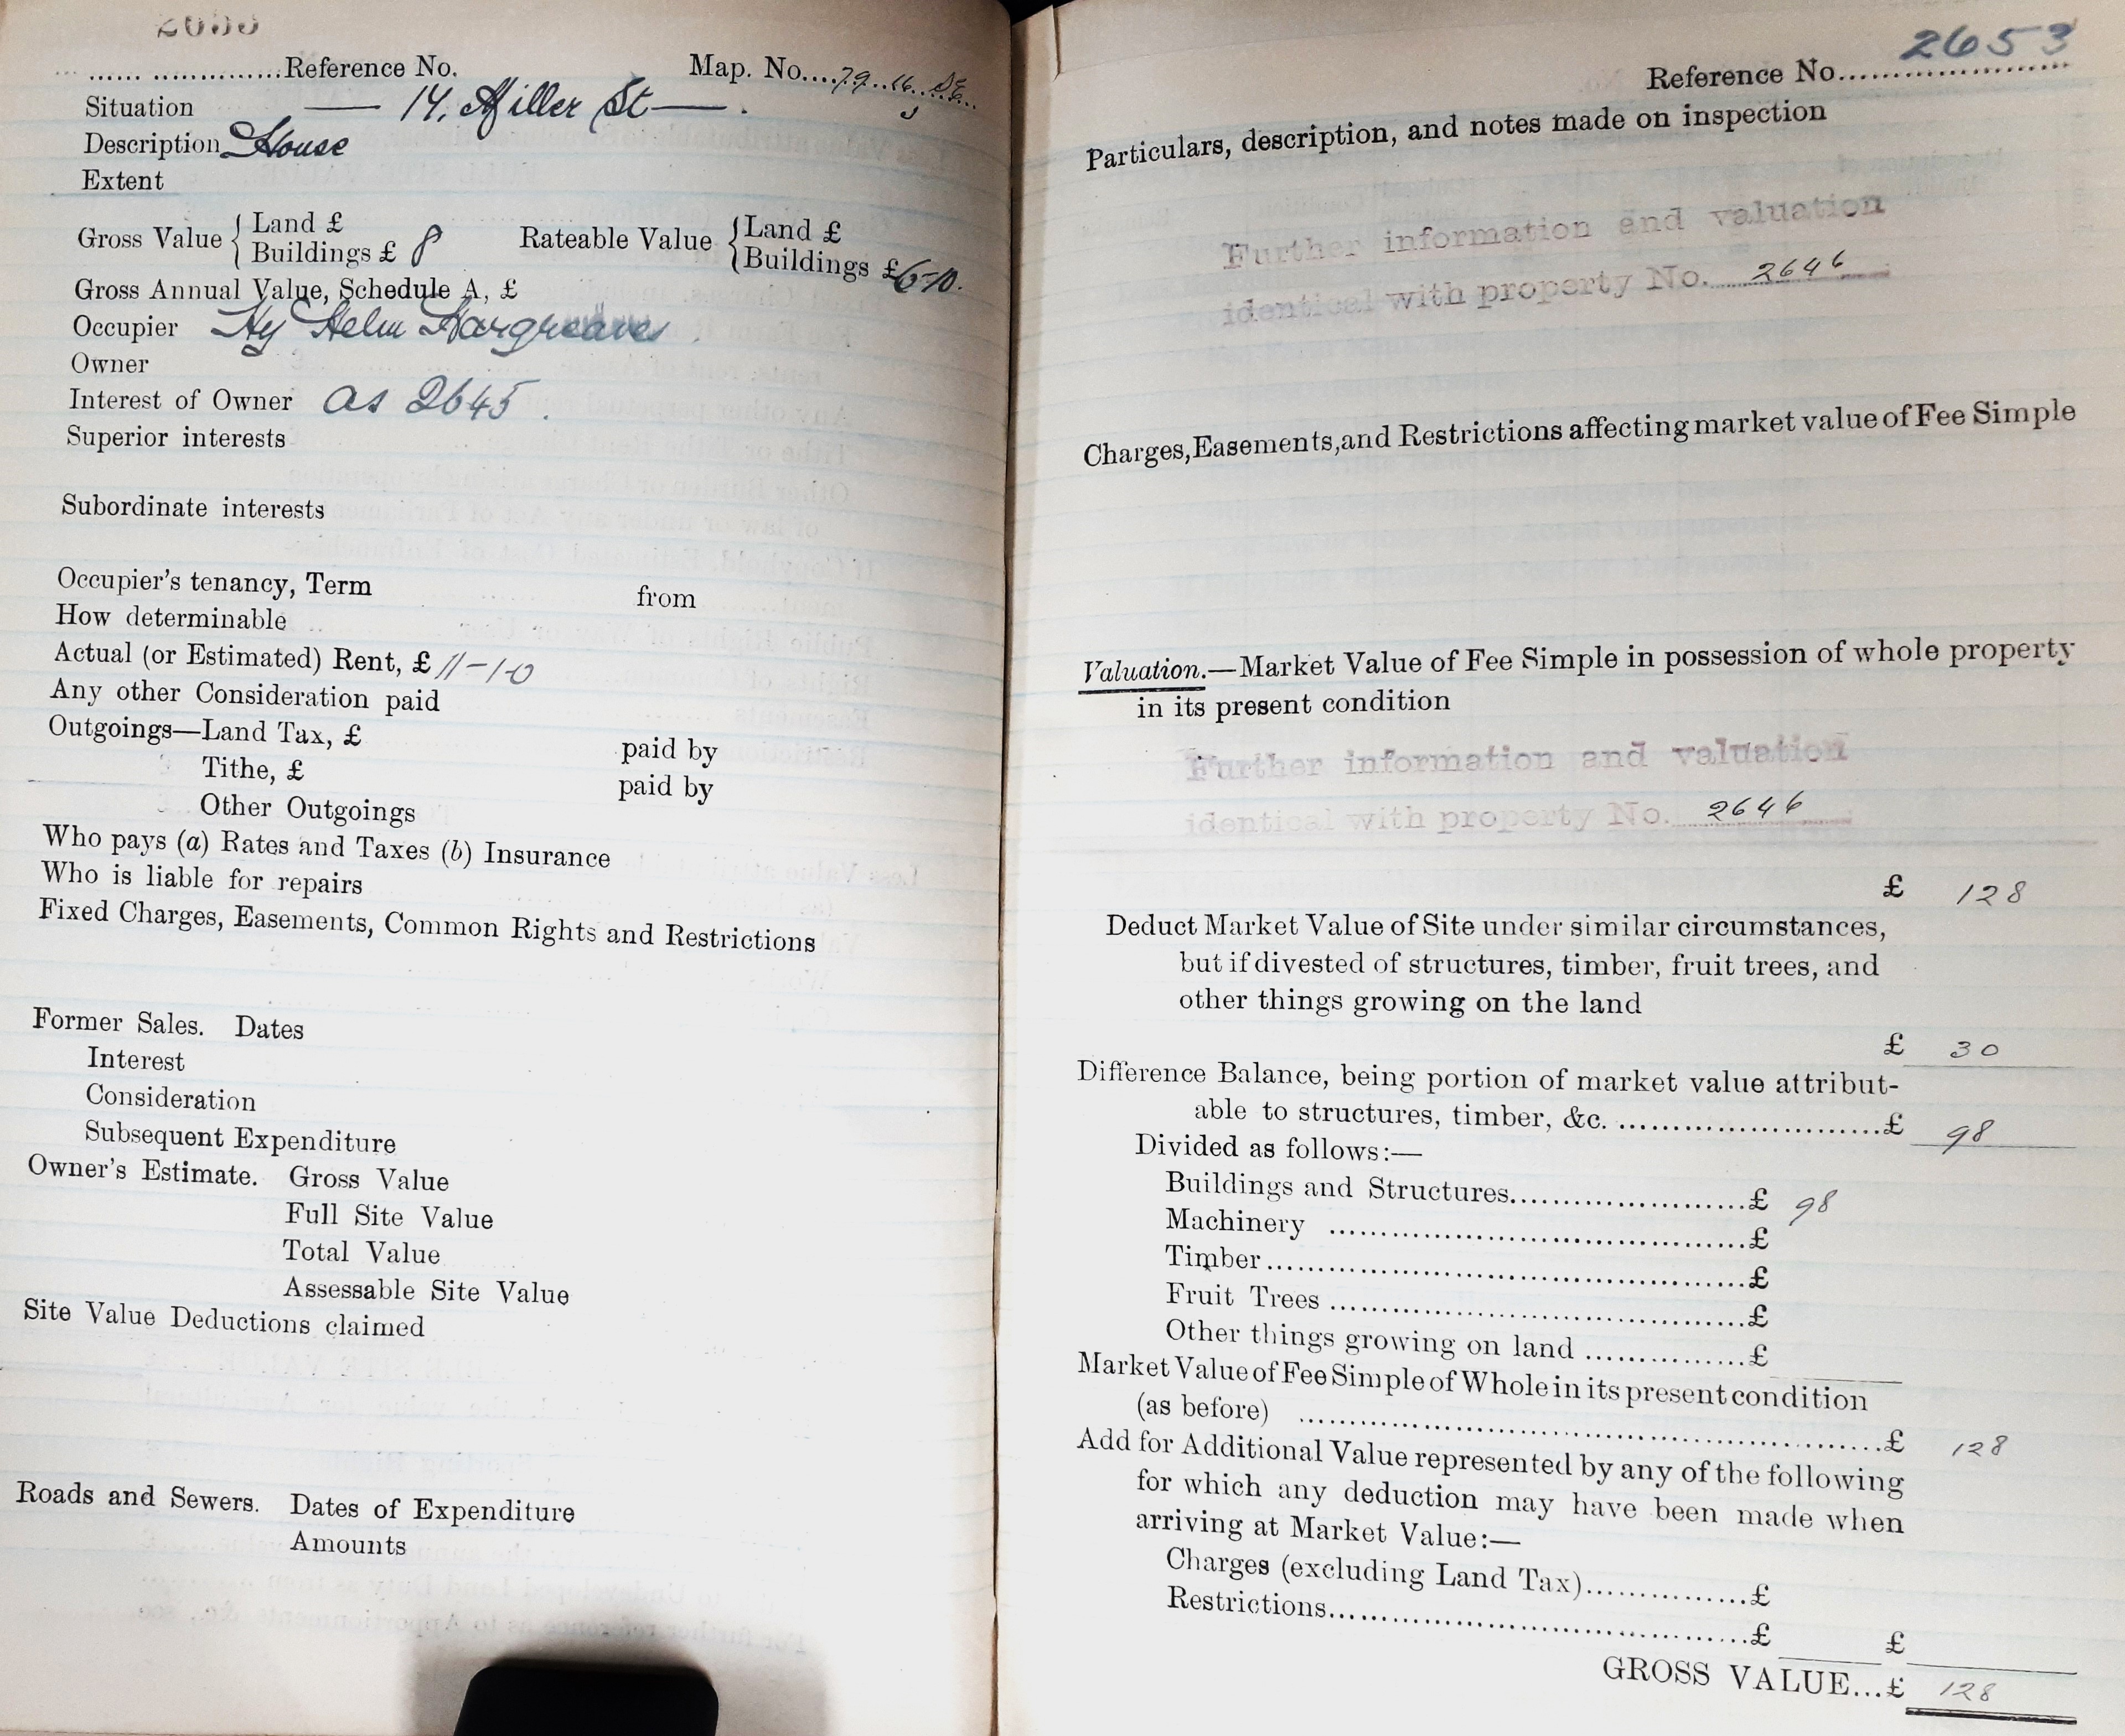 Reference No. Map. No....79..16..SE...
Situation — 14, Miller St — .
Description House
Extent
Gross Value { Land £ Rateable Value { Land £
Buildings £ 8 Buildings £ 6-10.
Gross Annual Value, Schedule A, £
Occupier Hy Helm Hargreaves.
Owner
Interest of Owner as 2645.
Superior interests
Subordinate interests
Occupier's tenancy, Term from
How determinable
Actual (or Estimated) Rent, £ 11-1-0
Any other Consideration paid
Outgoings—Land Tax, £ paid by
Tithe, £ paid by
Other Outgoings
Who pays (a) Rates and Taxes (b) Insurance
Who is liable for repairs
Fixed Charges, Easements, Common Rights and Restrictions
Former Sales. Dates
Interest
Consideration
Subsequent Expenditure
Owner's Estimate. Gross Value
Full Site Value
Total Value
Assessable Site Value
Site Value Deductions claimed
Roads and Sewers. Dates of Expenditure
Amounts
2653
Reference No.....................
Particulars, description, and notes made on inspection
Further information and valuation
identical with property No. 2646
Charges, Easements, and Restrictions affecting market value of Fee Simple
Valuation.—Market Value of Fee Simple in possession of whole property
in its present condition
Further information and valuation
identical with property No. 2646
£ 128
Deduct Market Value of Site under similar circumstances,
but if divested of structures, timber, fruit trees, and
other things growing on the land
£ 30
Difference Balance, being portion of market value attribut-
able to structures, timber, &c. ..........................£ 98
Divided as follows:—
Buildings and Structures........................£ 98
Machinery ..........................................£
Timber................................................£
Fruit Trees ..........................................£
Other things growing on land ................£
Market Value of Fee Simple of Whole in its present condition
(as before) ............................................................£ 128
Add for Additional Value represented by any of the following
for which any deduction may have been made when
arriving at Market Value:—
Charges (excluding Land Tax)................£
Restrictions..........................................£ £
GROSS VALUE...£ 128